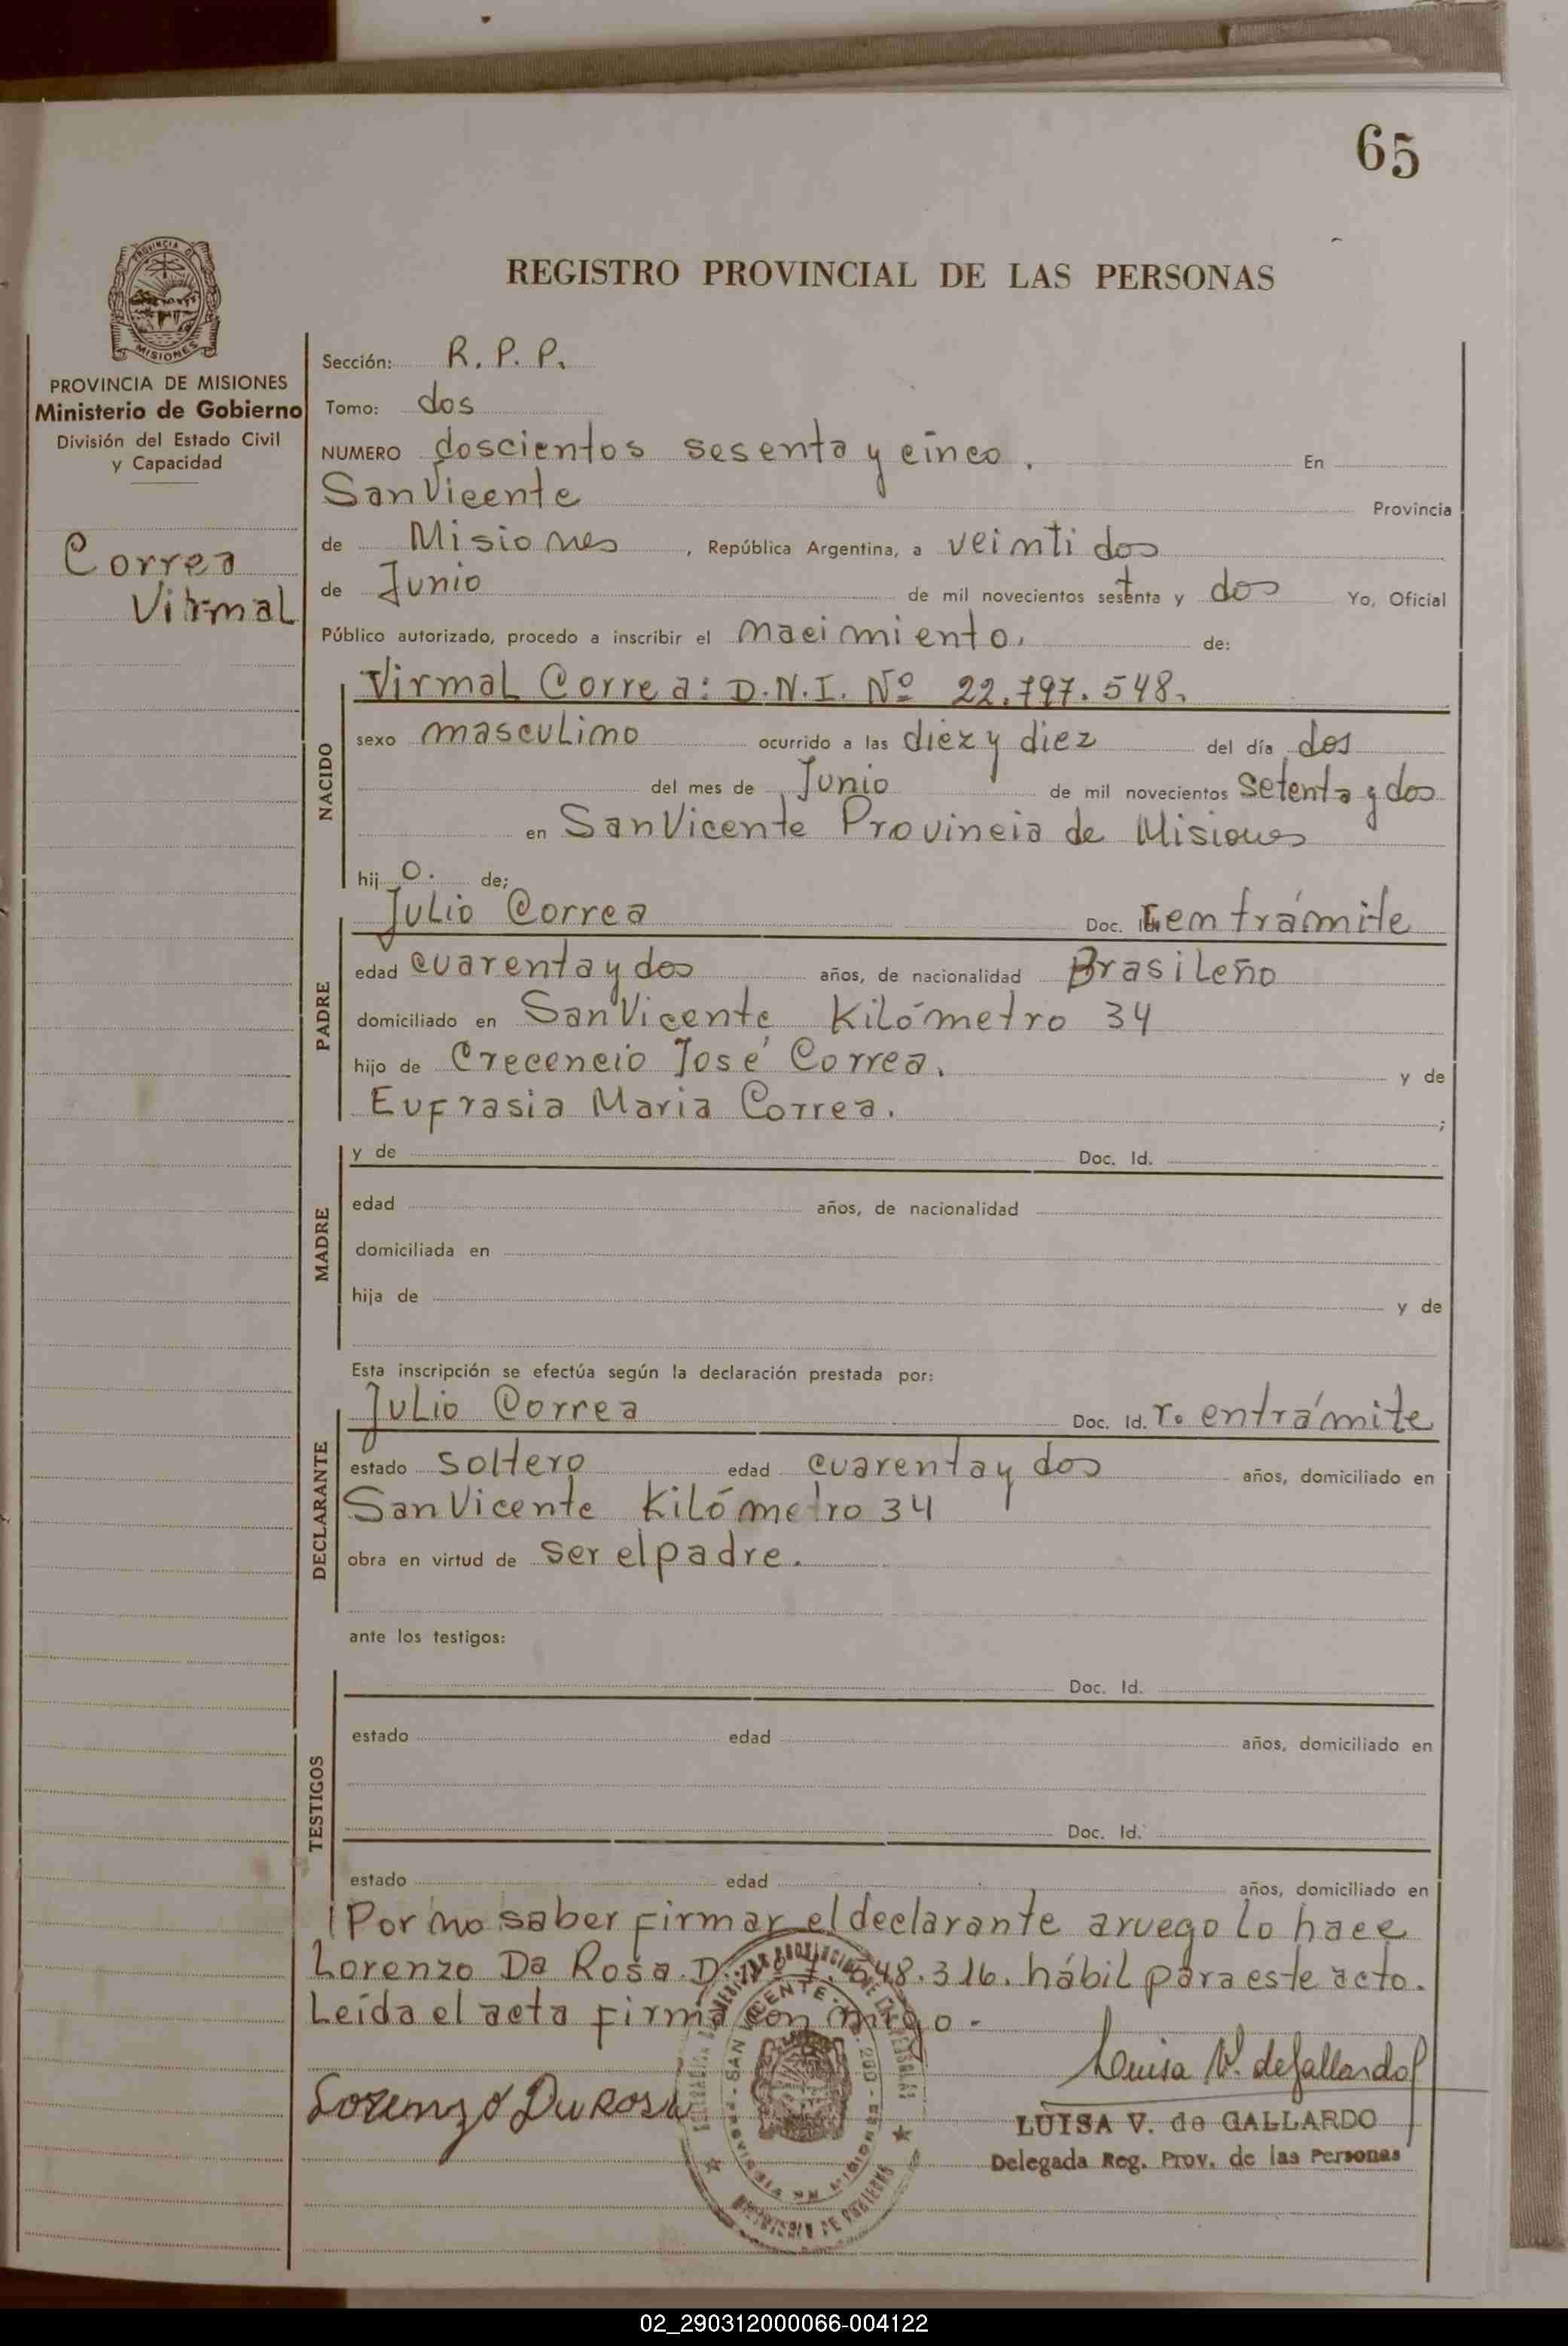 65
REGISTRO PROVINCIAL DE LAS PERSONAS
MISIONES
PROVINCIA DE MISIONES
Ministerio de Gobierno
División del Estado Civil
y Capacidad
Correa
Virmal
Sección: R. P. P.
Tomo: dos
NUMERO doscientos sesenta y cinco. En
San Vicente Provincia
de Misiones, República Argentina, a veinti dos
de Junio de mil novecientos sesenta y dos Yo, Oficial
Público autorizado, procedo a inscribir el nacimiento. de:
NACIDO
Virmal Correa: D.N.I. Nº 22.797.548.
sexo masculino ocurrido a las diez y diez del día dos
del mes de Junio de mil novecientos setenta y dos
en San Vicente Provincia de Misiones
hij o. de;
PADRE
Julio Correa Doc. en trámite
edad cuarenta y dos años, de nacionalidad Brasileño
domiciliado en San Vicente Kilómetro 34
hijo de Crecencio José Correa. y de
Eufrasia Maria Correa. ;
MADRE
y de Doc. Id.
edad años, de nacionalidad
domiciliada en
hija de y de
Esta inscripción se efectúa según la declaración prestada por:
DECLARANTE
Julio Correa Doc. Id. r. en trámite
estado soltero edad cuarenta y dos años, domiciliado en
San Vicente Kilómetro 34
obra en virtud de ser el padre.
ante los testigos:
TESTIGOS
Doc. Id.
estado edad años, domiciliado en
Doc. Id.
estado edad años, domiciliado en
Por no saber firmar el declarante a ruego lo hace
Lorenzo Da Rosa. 48.316. hábil para este acto.
Leída el acta firma con migo.
Lorenzo Du Rosa
Luisa V. de Gallardo
LUISA V. de GALLARDO
Delegada Reg. Prov. de las Personas
SAN VICENTE
02_290312000066-004122